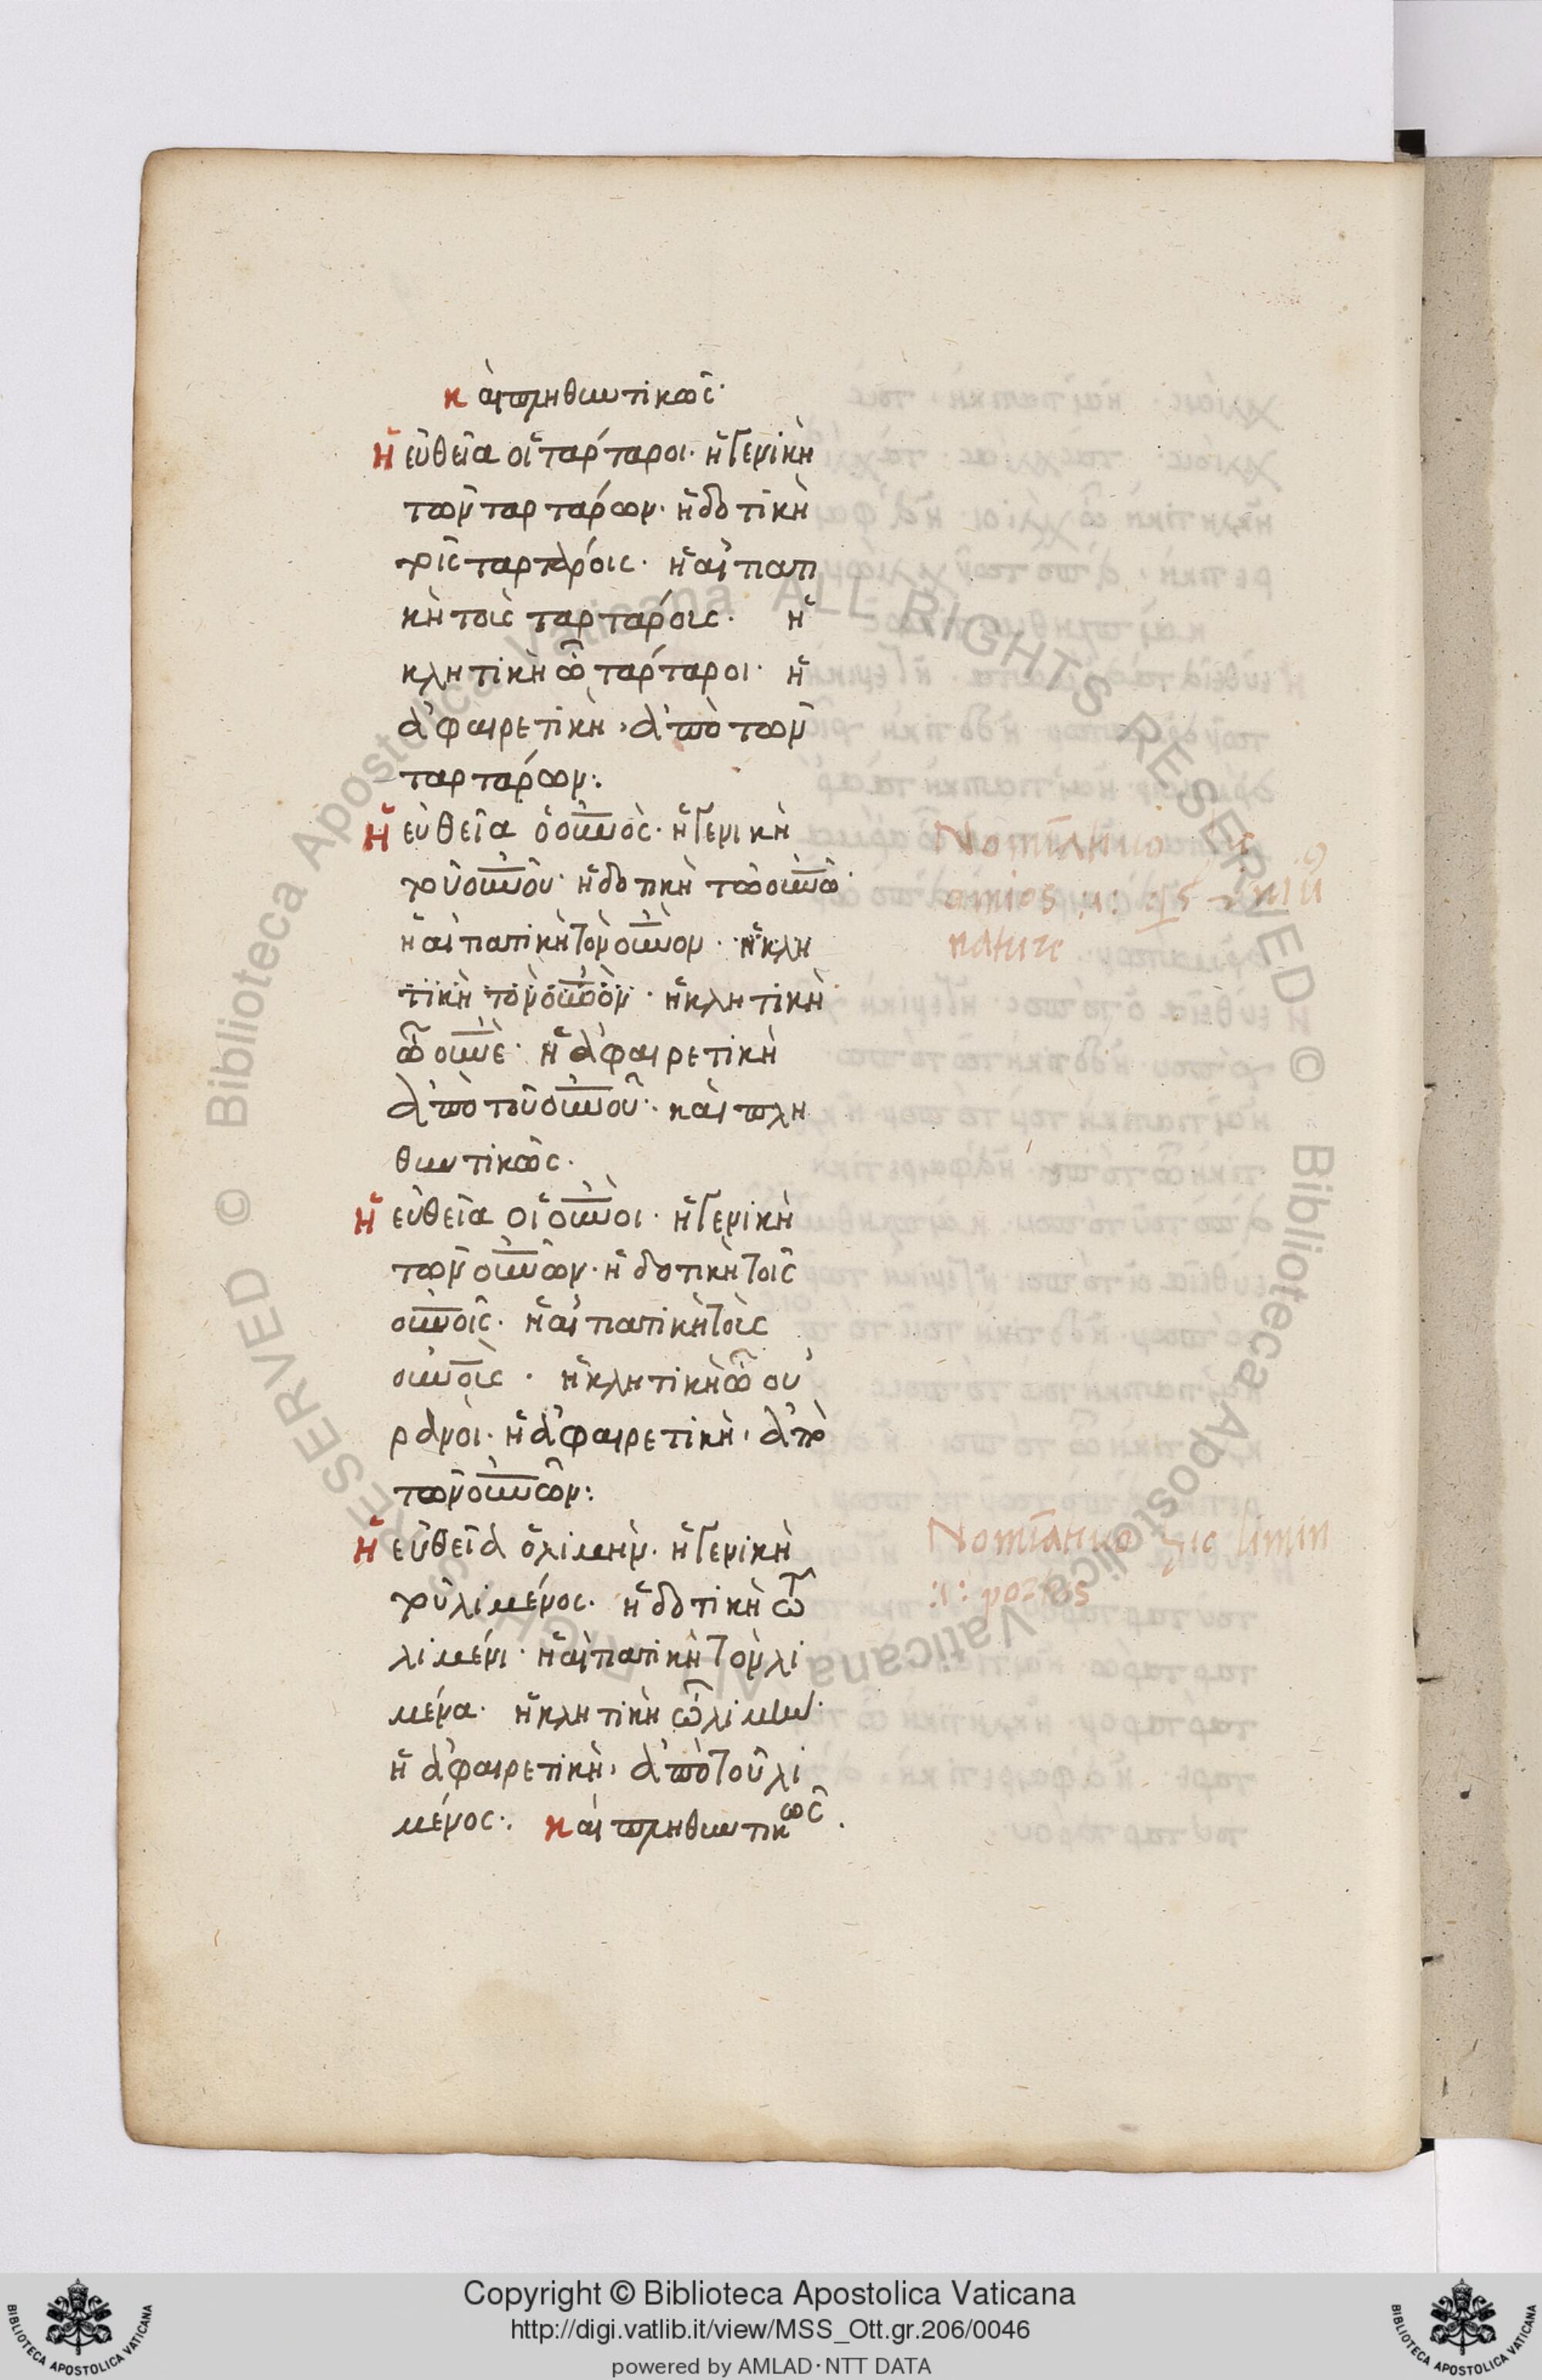 κὰι πληθυντικῶς·
ἡ εὐθεῖα οἱ ταρταροι· ἡ γενικὴ
τῶν ταρτάρων· ἡ δοτικὴ
τοῖς ταρτάροις· ἡ αἰτιατι
κὴ τοὶς ταρτάροις· ἡ
κλητικὴ ὦ ταρταροι· ἡ
ἀφαιρετικὴ, ἀπὸ τῶν
ταρτάρων:
ἡ εὐθεῖα ὁ οὐνὸς· ἡ γενικὴ
τοῦ οὐνοῦ· ἡ δοτικὴ τῶ οὐνῶ·
ἡ αἰτιατικὴ τὸν οὐνον· ἡ κλη
τικὴ τὸν οὐνὸν· ἡ κλητικὴ
ὦ οὐνὲ· ἡ ἀφαιρετικὴ
ἀπὸ τοῦ οὐνοῦ· κὰι πλη
θυντικῶς·
ἡ εὐθεῖα οἱ οὐνοι· ἡ γενικὴ
τῶν οὐνῶν· ἡ δοτικὴ τοῖς
οὐνοῖς· ἡ αἰτιατικὴ τοὶς
οὐνοὶς· ἡ κλητικὴ ὦ οὐ
ρανοι· ἡ ἀφαιρετικὴ, ἀπὸ
τῶν οὐνῶν:
ἡ εὐθεῖα ὁ λιμην· ἡ γενικὴ
τοῦ λιμένος· ἡ δοτικὴ τῶ
λιμένι· ἡ αἰτιατικὴ τὸν λι
μένα· ἡ κλητικὴ ὦ λιμην·
ἡ ἀφαιρετικὴ, ἀπὸ τοῦ λι
μένος·. κὰι πληθυντικῶς.
Nominatiuo
nature
Nominatiuo hic limin
Copyright © Biblioteca Apostolica Vaticana
http://digi.vatlib.it/view/MSS_Ott.gr.206/0046
powered by AMLAD·NTT DATA
BIBLIOTECA APOSTOLICA VATICANA
BIBLIOTECA APOSTOLICA VATICANA
© Biblioteca Apostolica Vaticana ALL RIGHTS RESERVED
© Biblioteca Apostolica Vaticana ALL RIGHTS RESERVED